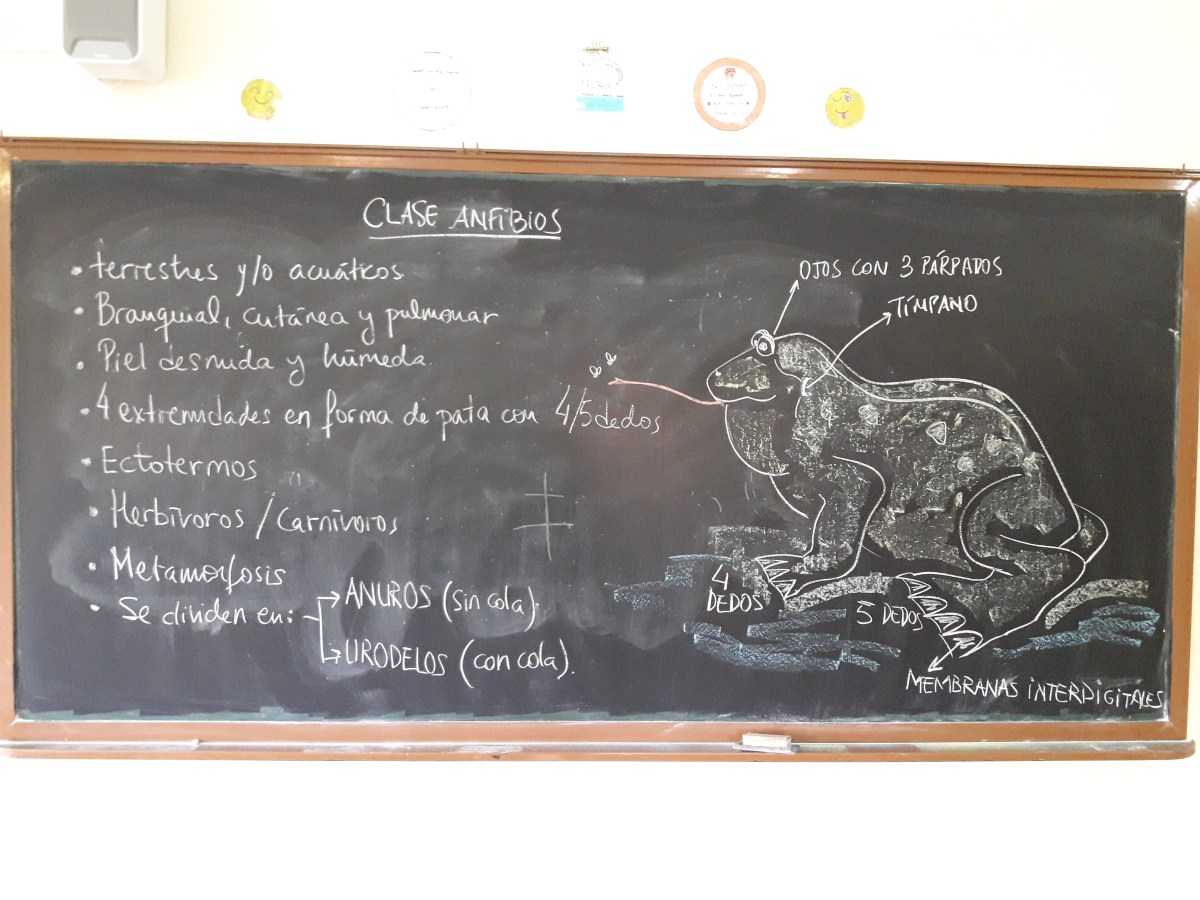 CLASE ANFIBIOS
• terrestres y/o acuáticos
• Branquial, cutánea y pulmonar
• Piel desnuda y húmeda.
• 4 extremidades en forma de pata con 4/5 dedos
• Ectotermos
• Herbívoros / Carnívoros
• Metamorfosis
• Se dividen en: → ANUROS (sin cola).
→ URODELOS (con cola).
OJOS CON 3 PÁRPADOS
TÍMPANO
4
DEDOS
5 DEDOS
MEMBRANAS INTERDIGITALES